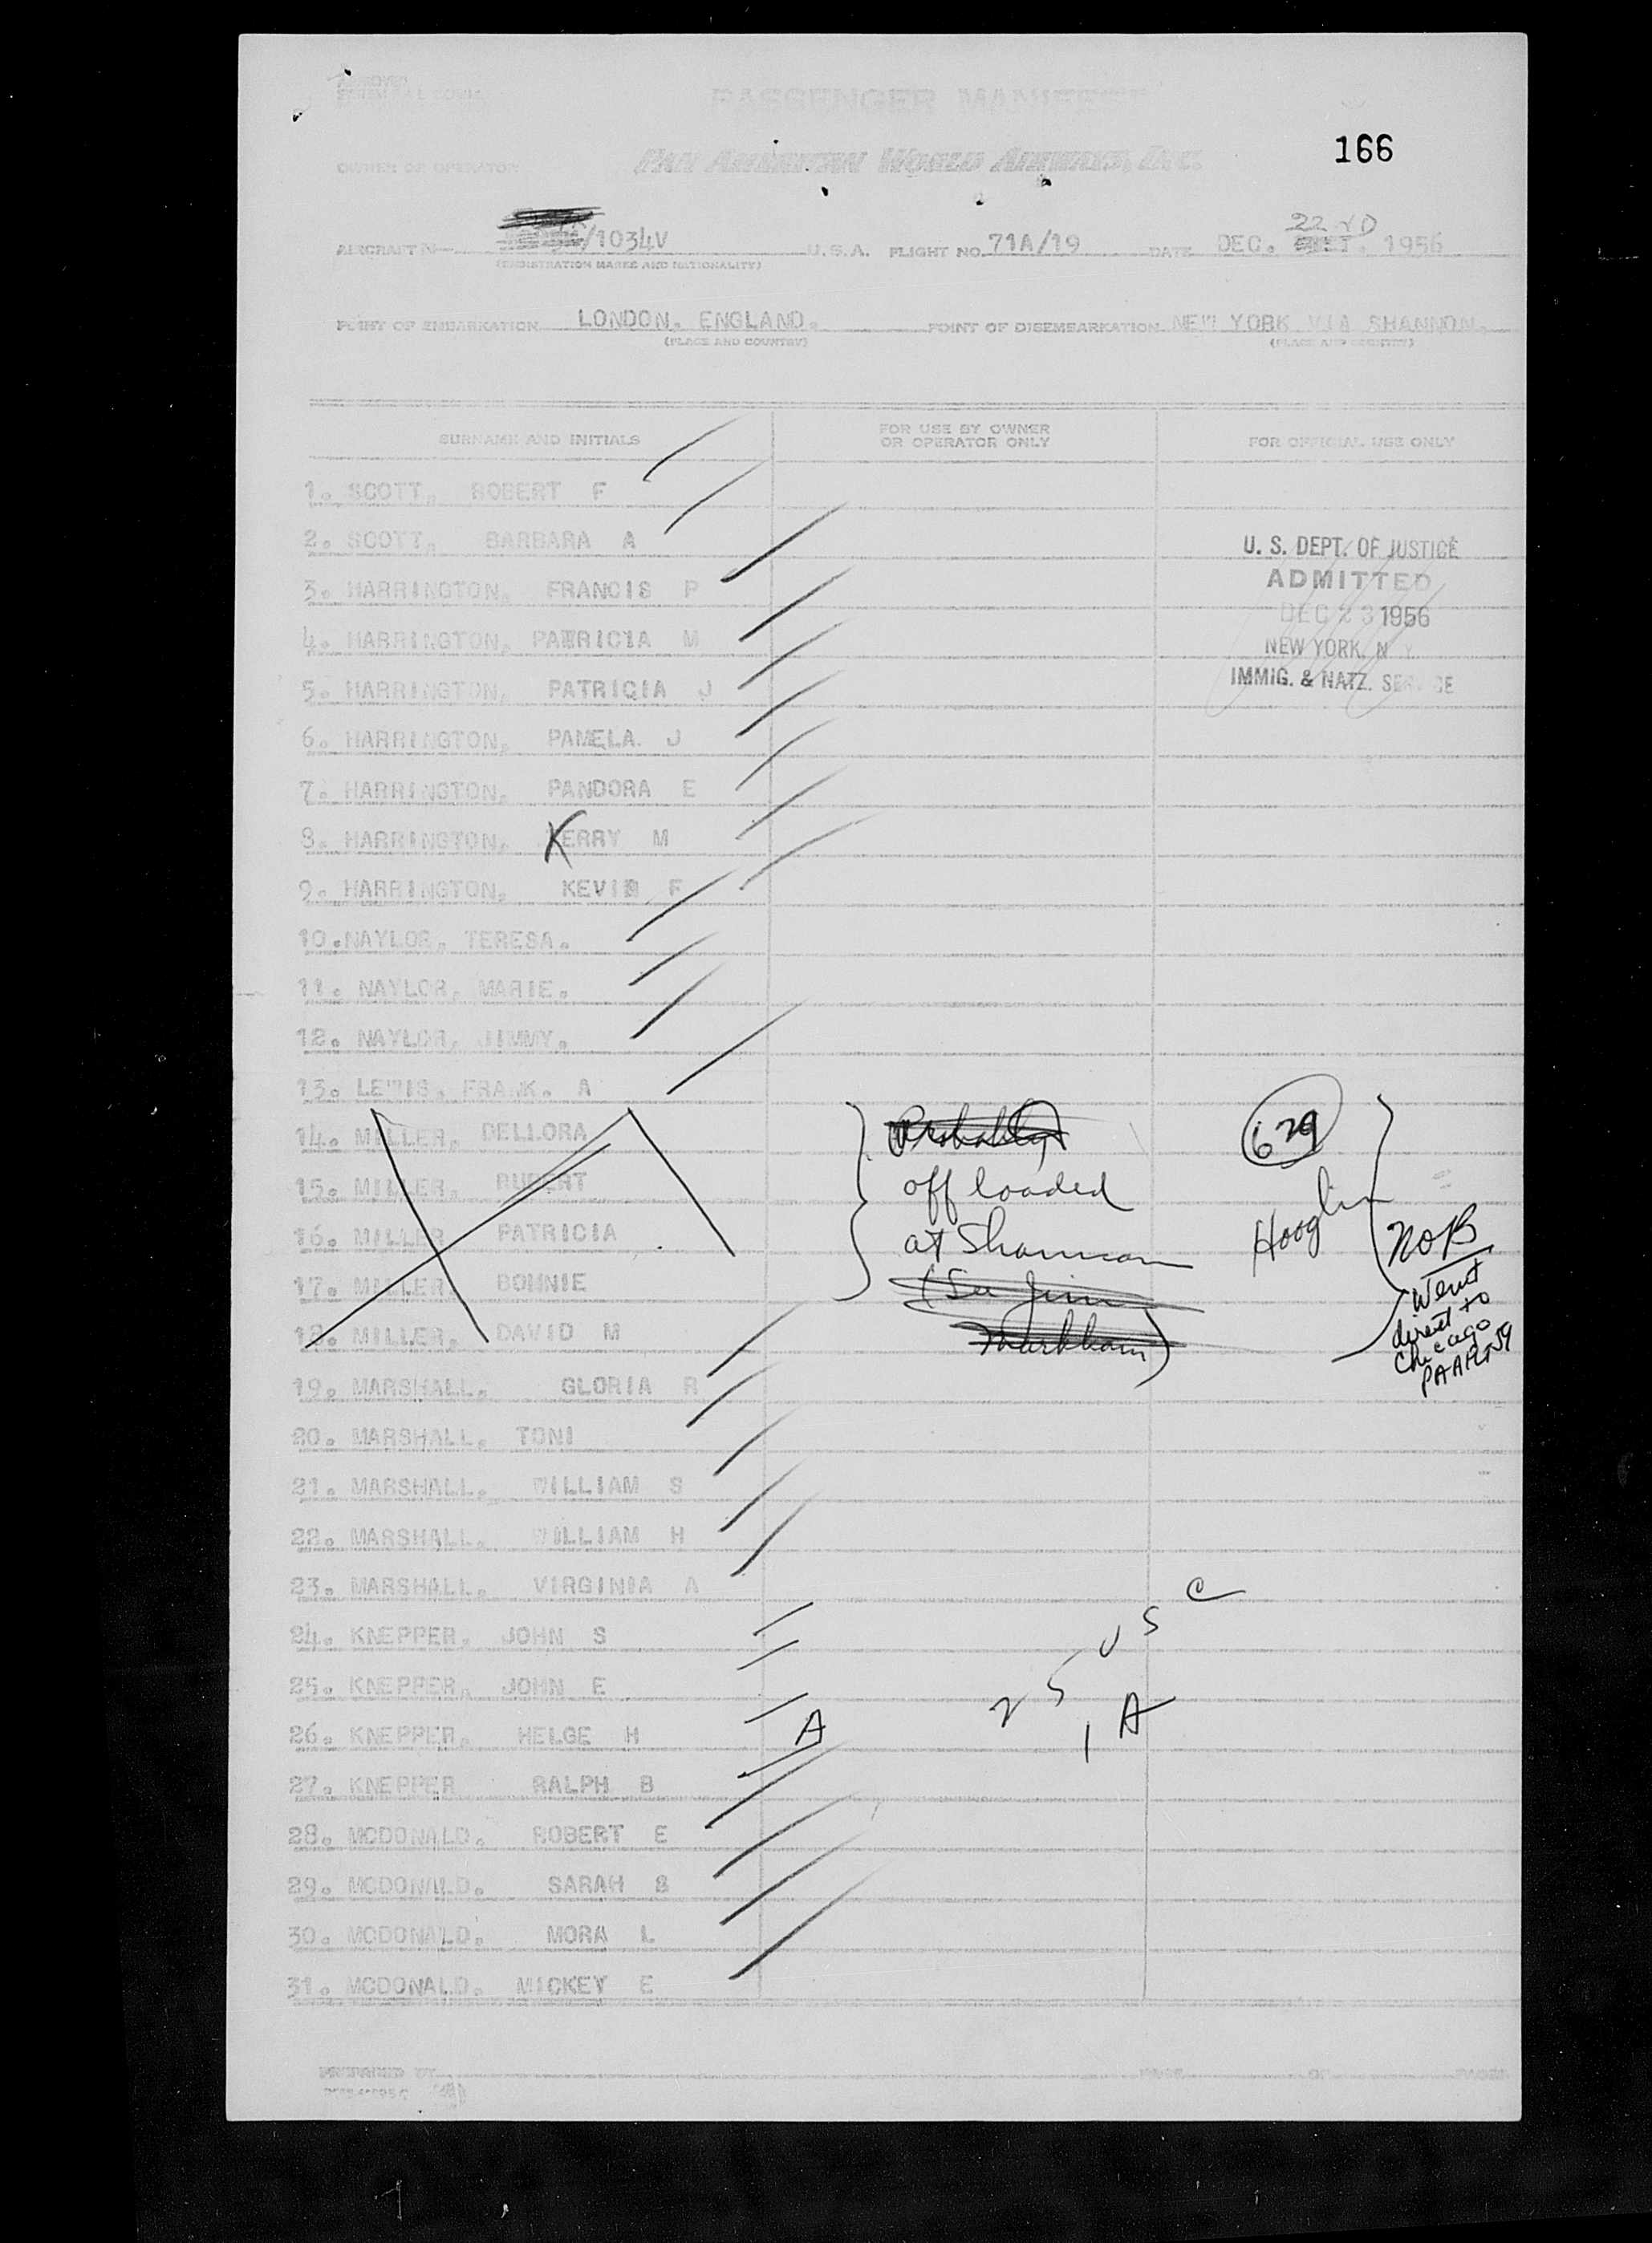 PASSENGER MANIFEST
PAN AMERICAN WORLD AIRWAYS, INC.
166
OWNER OR OPERATOR
22 ND
AIRCRAFT N /1034V U.S.A. FLIGHT NO. 71A/19 DATE DEC. 1956
(REGISTRATION MARKS AND NATIONALITY)
POINT OF EMBARKATION LONDON, ENGLAND. POINT OF DISEMBARKATION NEW YORK VIA SHANNON.
(PLACE AND COUNTRY) (PLACE AND COUNTRY)
SURNAME AND INITIALS FOR USE BY OWNER OR OPERATOR ONLY FOR OFFICIAL USE ONLY
1. SCOTT, ROBERT F
2. SCOTT, BARBARA A
U. S. DEPT. OF JUSTICE
ADMITTED
3. HARRINGTON, FRANCIS P
DEC 23 1956
4. HARRINGTON, PATRICIA M
NEW YORK, N Y.
5. HARRINGTON, PATRICIA J
IMMIG. & NATZ. SERVICE
6. HARRINGTON, PAMELA J
7. HARRINGTON, PANDORA E
8. HARRINGTON, KERRY M
9. HARRINGTON, KEVIN F
10. NAYLOR, TERESA.
11. NAYLOR, MARIE.
12. NAYLOR, JIMMY.
13. LEWIS, FRANK. A
14. MILLER, DELLORA Probably 629
15. MILLER, RUPERT off loaded
16. MILLER PATRICIA at Shannon
17. MILLER, BONNIE (See Jim
18. MILLER, DAVID M Markham)
NOB
Went
direct to
Chicago
19. MARSHALL, GLORIA R
20. MARSHALL, TONI
21. MARSHALL, WILLIAM S
22. MARSHALL, WILLIAM H
23. MARSHALL, VIRGINIA A
24. KNEPPER, JOHN S
25. KNEPPER, JOHN E
25 USC
26. KNEPPER, HELGE H A 1 A
27. KNEPPER RALPH B
28. MCDONALD, ROBERT E
29. MCDONALD, SARAH B
30. MCDONALD, MORA L
31. MCDONALD, MICKEY E
PREPARED BY PAGE OF PAGES